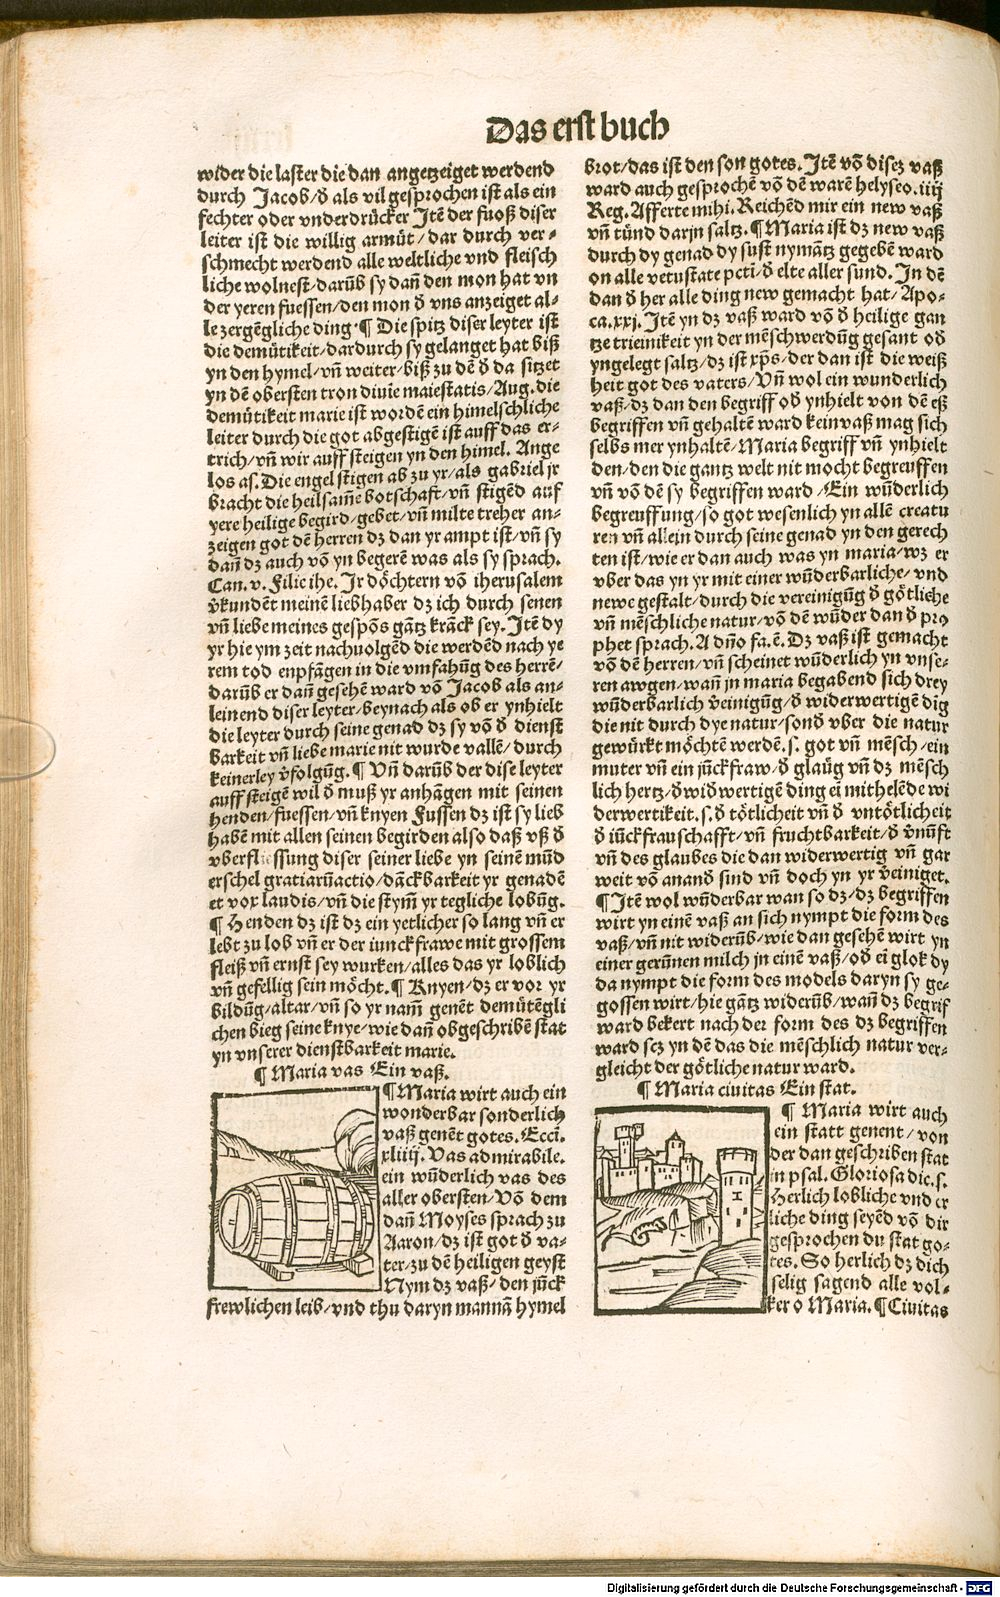 Das erst buch
wider die laster die dan angetzeiget werdend
durch Jacob/ð als vil gesprochen ist als ein
fechter oder vnderdrücker Jtē der fuoß diser
leiter ist die willig armüt/dar durch ver⸗
schmecht werdend alle weltliche vnd fleisch
liche wolnest/darūb sy dañ den mon hat vn
der yeren fuessen/den mon ð vns anzeiget al⸗
le zergēgliche ding·¶ Die spitz diser leyter ist
die demütikeit/dardurch sy gelanget hat biß
yn den hymel/vñ weiter/biß zu dē ð da sitzet
yn dē obersten tron diuīe maiestatis/Aug.die
demütikeit marie ist wordē ein himelschliche
leiter durch die got abgestigē ist auff das er⸗
trich/vñ wir auff steigen yn den himel. Ange
los as. Die engel stigen ab zu yr/als gabriel jr
bracht die heilsam̄e botschaft/vñ stigēd auf
yere heilige begird/gebet/vñ milte treher an⸗
zeigen got dē herren dz dan yr ampt ist/vñ sy
dañ dz auch vō yn begerē was als sy sprach.
Can. v. Filie ihe. Jr dôchtern vō iherusalem
v̄kundēt meinē liebhaber dz ich durch senen
vñ liebe meines gespōs gātz krāck sey. Jtē dy
yr hie ym zeit nachuolgēd die werdēd nach ye
rem tod enpfāgen in die vmfahūg des herrē/
darūb er dañ gesehē ward vō Jacob als an⸗
leinend diser leyter/beynach als ob er ynhielt
die leyter durch seine genad dz sy vō ð dienst
barkeit vñ liebe marie nit wurde vallē/durch
keinerley v̄folgūg. ¶ Vñ darūb der dise leyter
auff steigē wil ð muß yr anhāgen mit seinen
henden/fuessen/vñ knyen Fussen dz ist sy lieb
habē mit allen seinen begirden also daß vß ð
vberfliessung diser seiner liebe yn seinē mūd
erschel gratiarūactio/dāckbarkeit yr genadē
et vox laudis/vñ die stym̄ yr tegliche lobūg.
¶ Henden dz ist dz ein yetlicher so lang vñ er
lebt zu lob vñ er der iunckfrawe mit grossem
fleiß vñ ernst sey wurken/alles das yr loblich
vñ gefellig sein möcht. ¶ Knyen/dz er vor yr
bildūg/altar/vñ so yr nam̄ genēt demütēgli
chen bieg seine knye/wie dañ obgeschribē stat
yn vnserer dienstbarkeit marie.
¶ Maria vas Ein vaß.
¶ Maria wirt auch ein
wonderbar sonderlich
vaß genēt gotes. Eccī.
xliiij. Vas admirabile.
ein wūderlich vas des
aller obersten/Vō dem
dañ Moyses sprach zu
Aaron/dz ist got ð va⸗
ter/zu dē heiligen geyst
Nym dz vaß/den jūck
frewlichen leib/vnd thu daryn mannā hymel
brot/das ist den son gotes. Jtē vō disez vaß
ward auch gesprochē vō dē warē helyseo.iiij
Reg. Afferte mihi. Reichēd mir ein new vaß
vñ tūnd darjn saltz. ¶ Maria ist dz new vaß
durch dy genad dy sust nymātz gegebē ward
on alle vetustate pcti/ð elte aller sund. Jn dē
dan ð her alle ding new gemacht hat/Apo⸗
ca.xxj. Jtē yn dz vaß ward vō ð heilige gan
tze trieinikeit yn der mēschwerdūg gesant oð
yngelegt saltz/dz ist xp̄s/der dan ist die weiß
heit got des vaters/Vñ wol ein wunderlich
vaß/dz dan den begriff oð ynhielt von dē eß
begriffen vñ gehaltē ward kein vaß mag sich
selbs mer ynhaltē/Maria begriff vñ ynhielt
den/den die gantz welt nit mocht begreuffen
vñ vō dē sy begriffen ward/Ein wūderlich
begreuffung/so got wesenlich yn allē creatu
ren vñ allein durch seine genad yn den gerech
ten ist/wie er dan auch was yn maria/wz er
vber das yn yr mit einer wūderbarliche/vnd
newe gestalt/durch die vereinigūg ð gôtliche
vñ mēschliche natur/vō dē wūder dan ð pro
phet sprach. A dño fa.ē. Dz vaß ist gemacht
vō dē herren/vñ scheinet wūderlich yn vnse⸗
ren awgen/wañ jn maria begabend sich drey
wūderbarlich v̄einigūg/ð widerwertigē dīg
die nit durch dye natur/sonð vber die natur
gewürkt möchtē werdē. s. got vñ mēsch/ein
muter vñ ein jūckfraw/ð glaūg vñ dz mēsch
lich hertz/ð wiðwertigē ding eī mithelēde wi
derwertikeit. s. ð tôtlicheit vñ ð vntôtlicheit
ð iūckfrauschafft/vñ fruchtbarkeit/ð v̄nūft
vñ des glaubes die dan widerwertig vñ gar
weit vō ananð sind vñ doch yn yr v̄einiget.
¶ Jtē wol wūderbar wan so dz/dz begriffen
wirt yn einē vaß an sich nympt die form des
vaß/vñ nit widerūb/wie dan gesehē wirt yn
einer gerūnen milch jn einē vaß/oð eī glok dy
da nympt die form des models daryn sy ge⸗
gossen wirt/hie gātz widerūb/wañ dz begrif
ward bekert nach der form des dz begriffen
ward sez yn dē das die mēschlich natur ver⸗
gleicht der gôtliche natur ward.
¶ Maria ciuitas Ein stat.
¶ Maria wirt auch
ein statt genent/von
der dan geschriben stat
in psal. Gloriosa dic. s.
Herlich lobliche vnd er
liche ding seyēd vō dir
gesprochen du stat go⸗
tes. So herlich dz dich
selig sagend alle vol⸗
ker o Maria. ¶ Ciuitas
Digitalisierung gefördert durch die Deutsche Forschungsgemeinschaft - DFG